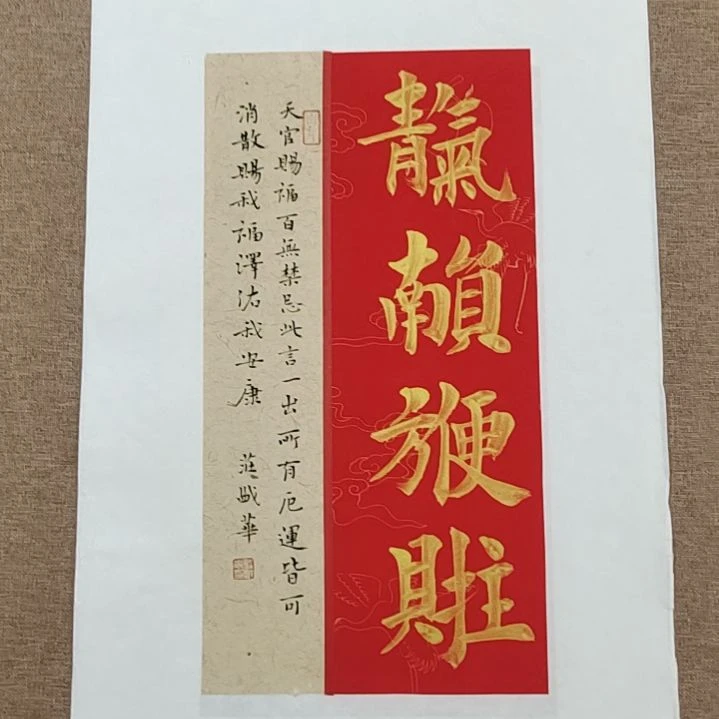 靝
天官賜福百無禁忌此言一出所有厄運皆可
消散賜我福澤佑我安康 華